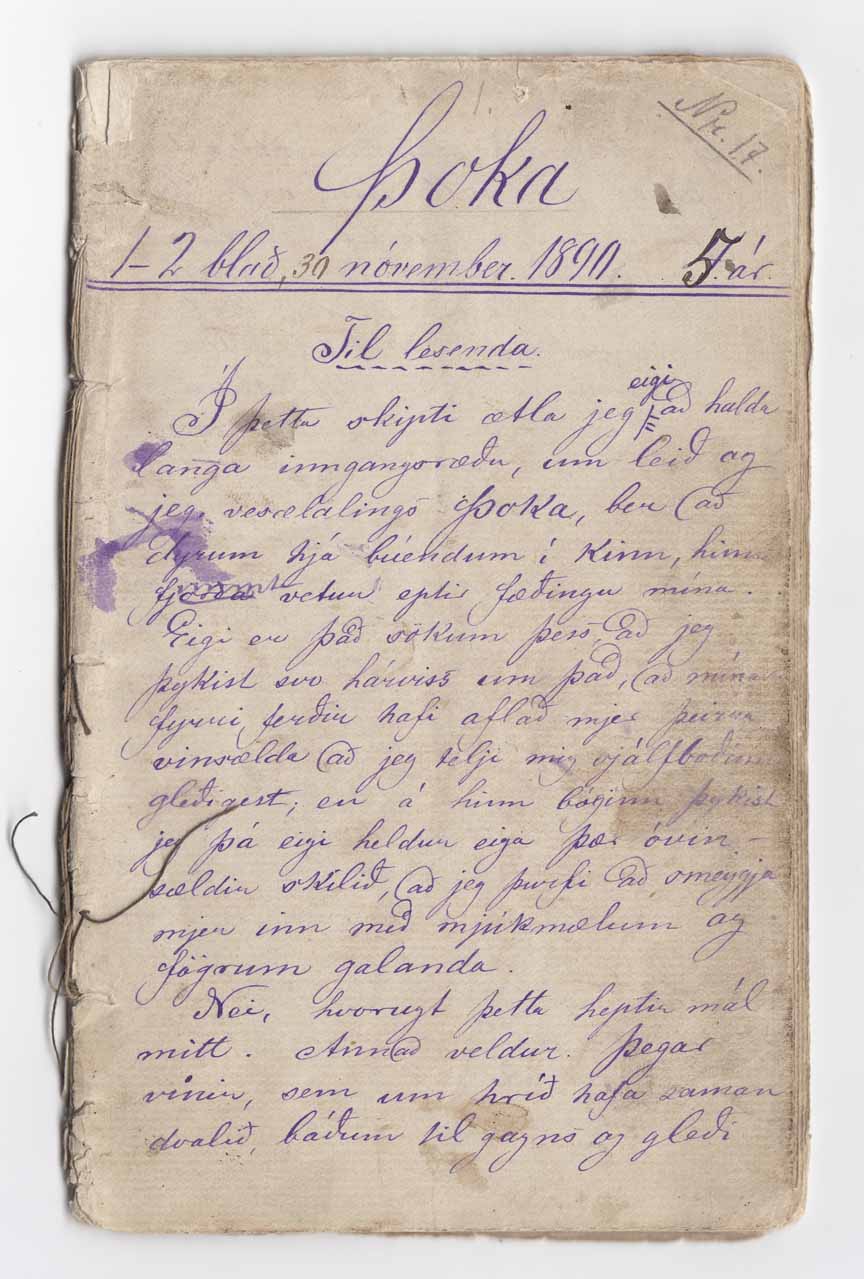 1.
Nr. 17.
Þoka
1-2 blað, 30 nóvember. 1890. 5. ár.
Til lesenda.
Í þetta skipti ætla jeg eigi að halda
langa inngangsræðu, um leið og
jeg, vesælalings Þoka, ber að
dyrum hjá búendum í Kinn, hinn
vetur eptir fæðingu mína.
Eigi er það sökum þess, að jeg
þykist svo hárviss um það, að mínar
fyrri ferðir hafi aflað mjer þeirra
vinsælda að jeg telji mig sjálfboðinn
gleðigest; en á hinn bóginn þykist
jeg þá eigi heldur eiga þær óvin-
sældir skilið, að jeg þurfi að smeygja
mjer inn með mjúkmælum og
fögrum galanda.
Nei, hvorugt þetta heptir mál
mitt. Annað veldur. Þegar
vinir, sem um hríð hafa saman
dvalið, báðum til gagns og gleði